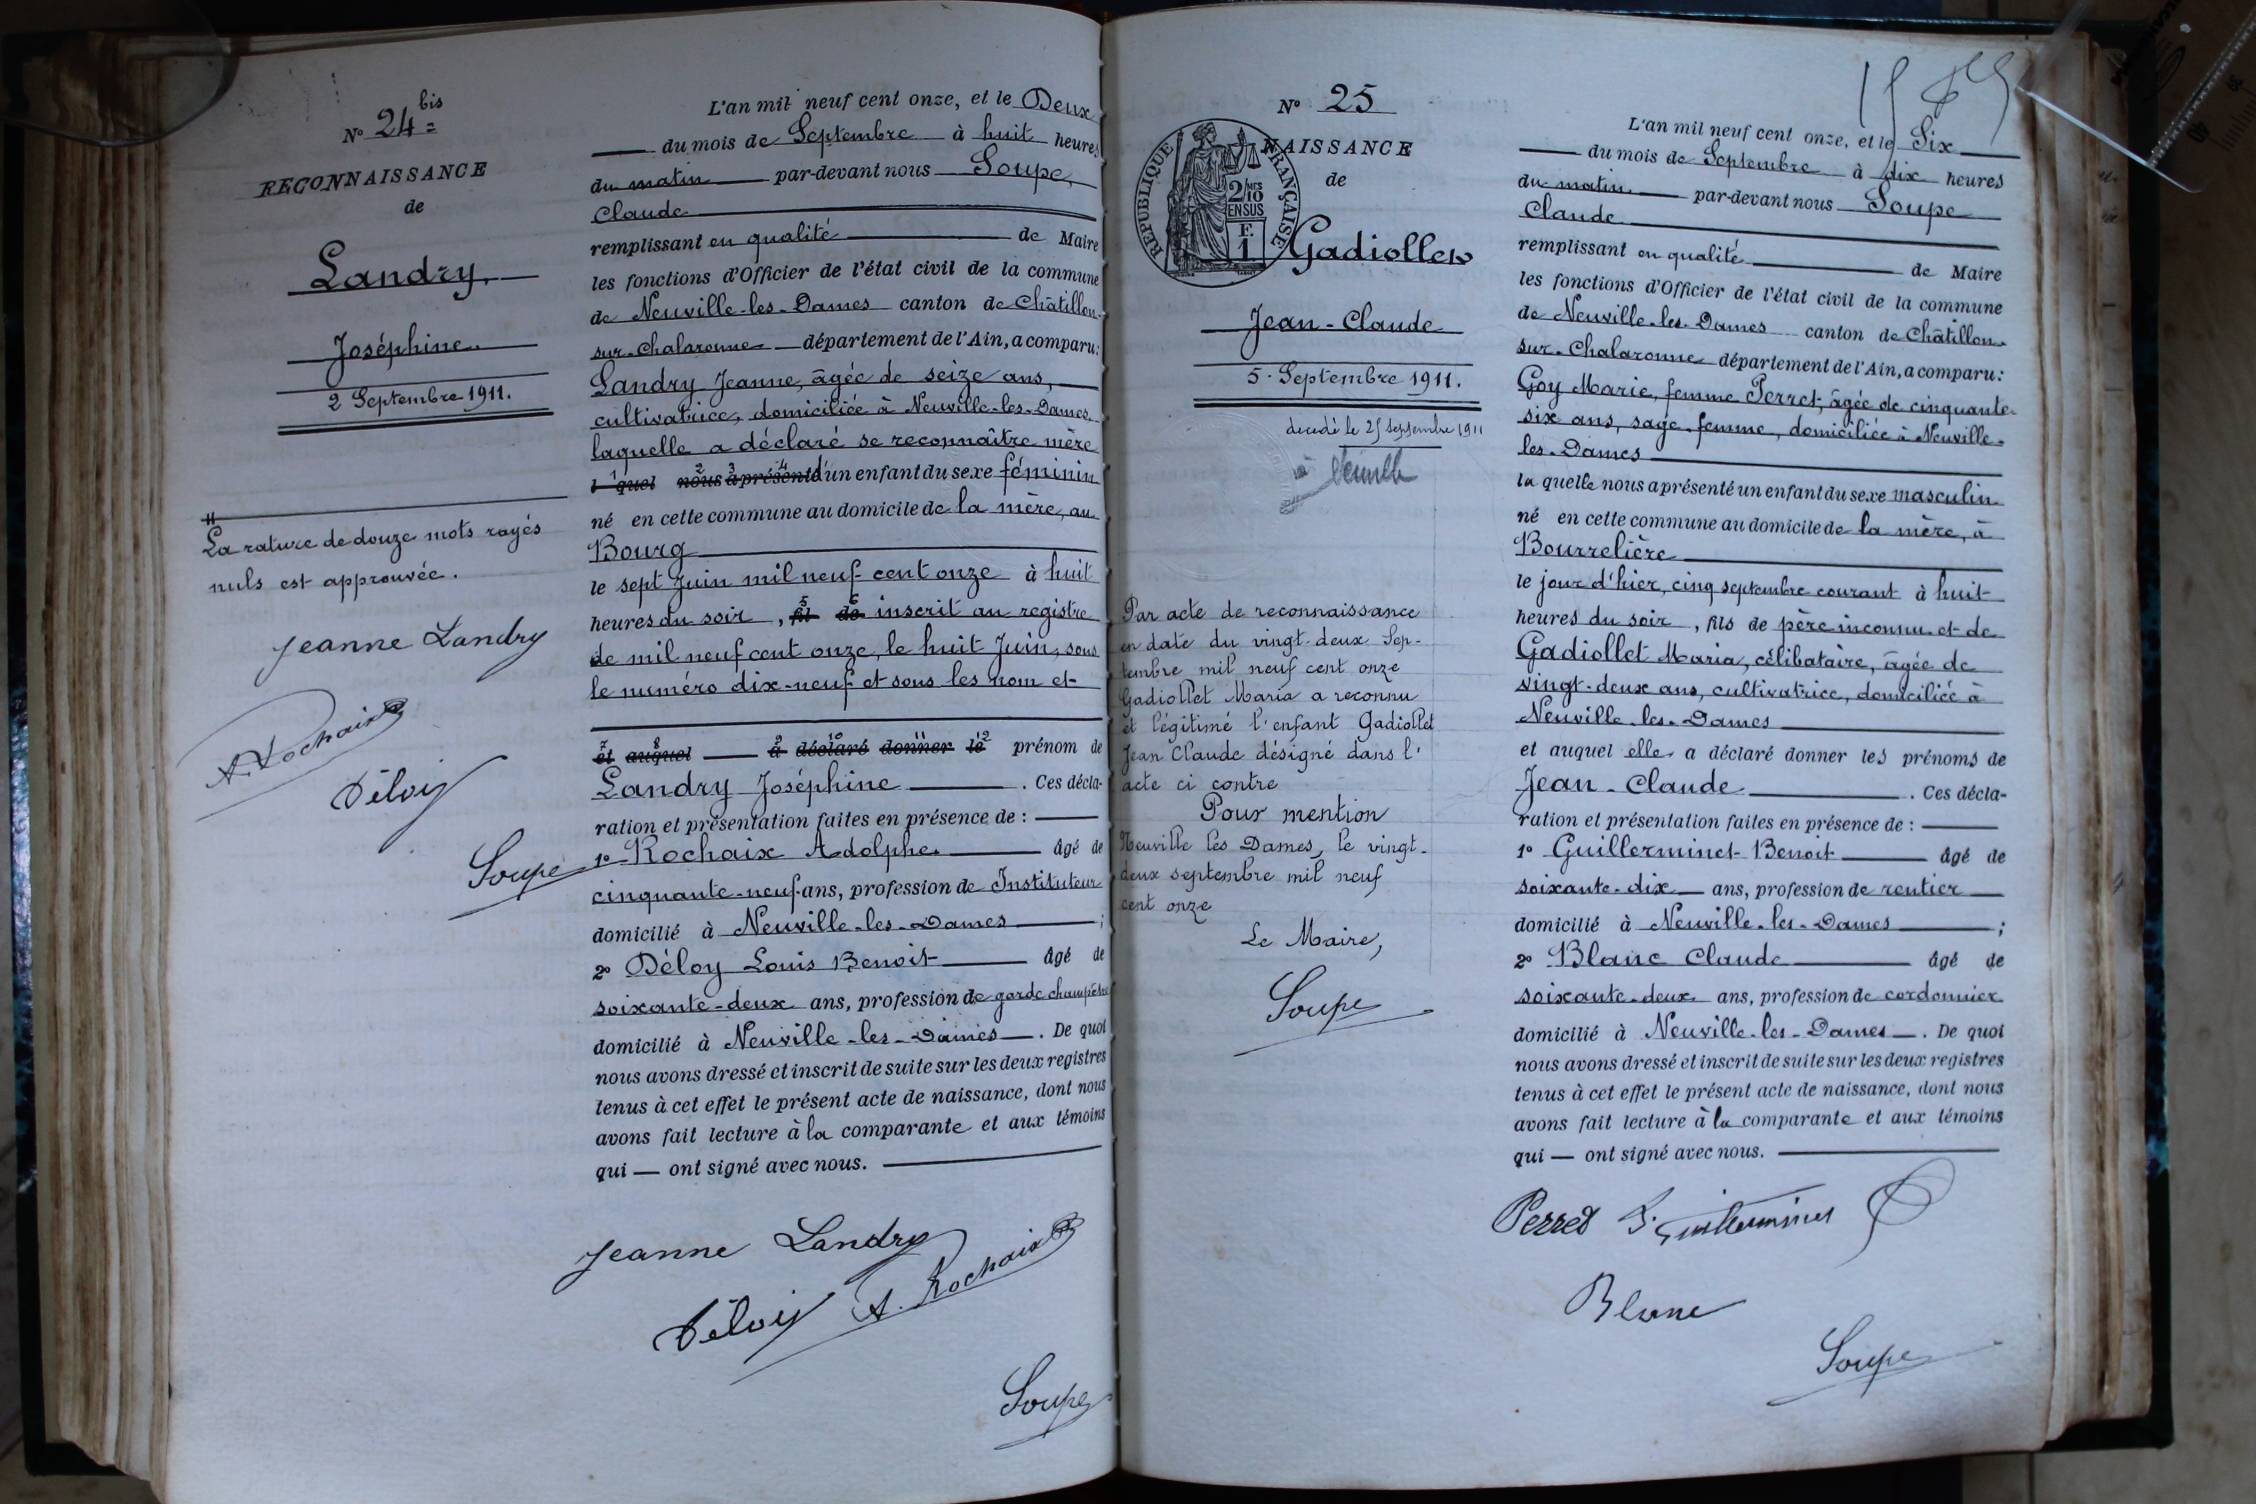 N° 24 bis
RECONNAISSANCE
de
Landry,
Joséphine
2 Septembre 1911.
La rature de douze mots rayés
nuls est approuvée.
Jeanne Landry
A. Rochaix
Déloy
Soupe
L'an mil neuf cent onze, et le Deux
du mois de Septembre à huit heures
du matin par-devant nous Soupe,
Claude
remplissant en qualité de Maire
les fonctions d'Officier de l'état civil de la commune
de Neuville-les-Dames canton de Châtillon-
sur-Chalaronne département de l'Ain, a comparu:
Landry Jeanne, âgée de seize ans,
cultivatrice, domiciliée à Neuville-les-Dames
laquelle a déclaré se reconnaître mère
l 1 quel 2 nous 3 a 4 présenté d'un enfant du sexe féminin
né en cette commune au domicile de la mère, au
Bourg
le sept Juin mil neuf cent onze à huit
heures du soir, 5 fil 6 de inscrit au registre
de mil neuf cent onze, le huit Juin, sous
le numéro dix-neuf et sous les nom et
7 et 8 auquel 9 a 10 déclaré 11 donner 12 le prénom de
Landry Joséphine . Ces décla-
ration et présentation faites en présence de :
1° Rochaix Adolphe âgé de
cinquante-neuf ans, profession de Instituteur
domicilié à Neuville-les-Dames ;
2° Déloy Louis Benoit âgé de
soixante-deux ans, profession de garde champêtre
domicilié à Neuville-les-Dames . De quoi
nous avons dressé et inscrit de suite sur les deux registres
tenus à cet effet le présent acte de naissance, dont nous
avons fait lecture à la comparante et aux témoins
qui — ont signé avec nous.
Jeanne Landry
Déloy A. Rochaix
Soupe
N° 25
NAISSANCE
de
RÉPUBLIQUE FRANÇAISE
2/10 MES
EN SUS
F.
1
Gadiollet
Jean-Claude
5 Septembre 1911.
decedé le 25 septembre 1911
à
Par acte de reconnaissance
en date du vingt-deux Sep-
tembre mil neuf cent onze
Gadiollet Maria a reconnu
et légitimé l'enfant Gadiollet
Jean Claude désigné dans l'
acte ci contre
Pour mention
Neuville les Dames, le vingt-
deux septembre mil neuf
cent onze
Le Maire,
Soupe
L'an mil neuf cent onze, et le Six
du mois de Septembre à dix heures
du matin par-devant nous Soupe
Claude
remplissant en qualité de Maire
les fonctions d'Officier de l'état civil de la commune
de Neuville-les-Dames canton de Châtillon-
sur-Chalaronne département de l'Ain, a comparu:
Goy Marie, femme Perret, âgée de cinquante-
six ans, sage-femme, domiciliée à Neuville-
les-Dames
la quelle nous a présenté un enfant du sexe masculin
né en cette commune au domicile de la mère, à
Bourrelière
le jour d'hier, cinq septembre courant à huit
heures du soir, fils de père inconnu et de
Gadiollet Maria, célibataire, âgée de
vingt-deux ans, cultivatrice, domiciliée à
Neuville-les-Dames
et auquel elle a déclaré donner les prénoms de
Jean-Claude . Ces décla-
ration et présentation faites en présence de :
1° Guillerminet Benoit âgé de
soixante-dix ans, profession de rentier
domicilié à Neuville-les-Dames ;
2° Blanc Claude âgé de
soixante-deux ans, profession de cordonnier
domicilié à Neuville-les-Dames . De quoi
nous avons dressé et inscrit de suite sur les deux registres
tenus à cet effet le présent acte de naissance, dont nous
avons fait lecture à la comparante et aux témoins
qui — ont signé avec nous.
Perret B. Guillerminet
Blanc
Soupe